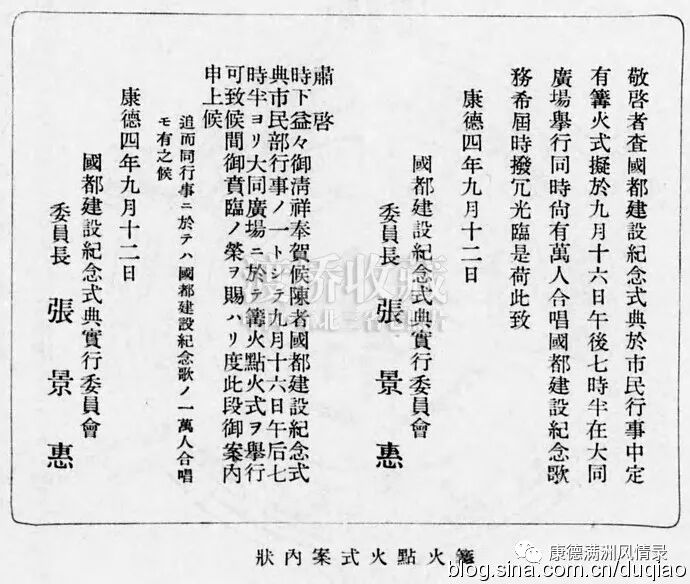 敬啓者査國都建設紀念式典於市民行事中定
有篝火式擬於九月十六日午後七時半在大同
廣場舉行同時尙有萬人合唱國都建設紀念歌
務希屆時撥冗光臨是荷此致
康德四年九月十二日
國都建設紀念式典實行委員會
委員長 張景惠
肅啓
時下益々御淸祥奉賀候陳者國都建設紀念式
典市民部行事ノ一トシテ九月十六日午后七
時半ヨリ大同廣場ニ於テ篝火點火式ヲ舉行
可致候間御賁臨ノ榮ヲ賜ハリ度此段御案內
申上候
追而同行事ニ於テハ國都建設紀念歌ノ一萬人合唱
モ有之候
康德四年九月十二日
國都建設紀念式典實行委員會
委員長 張景惠
狀內案式火點火篝
康德满洲风情录
blog.sina.com.cn/duqiao